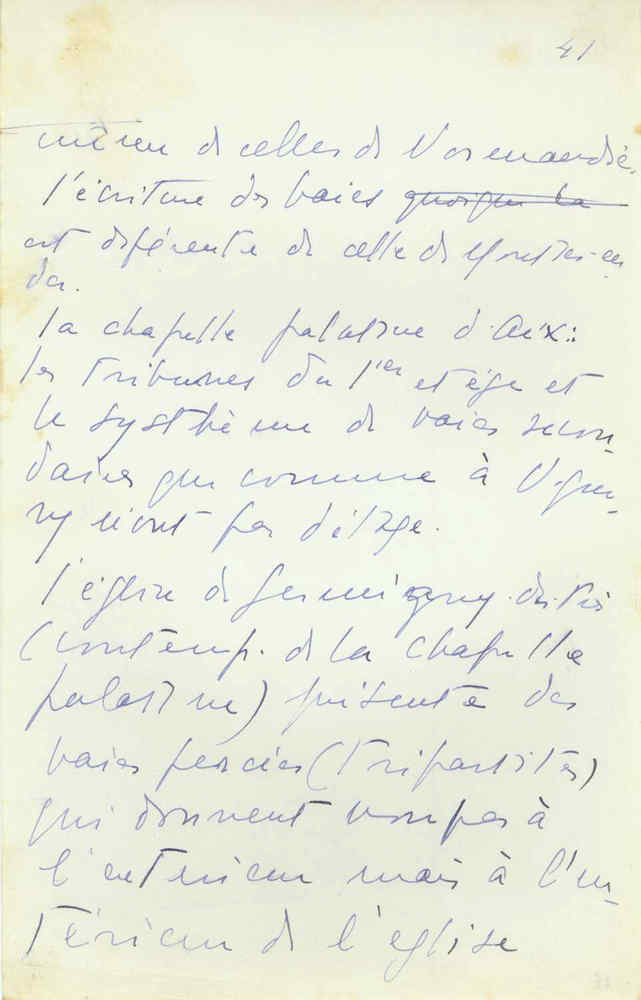 41
même de celles de Normandie,
l'écriture des baies quoique la
est différente de celle de Montier-en
Der.
la chapelle palatine d'Aix :
les tribunes du 1er etage et
le systhème de baies secon-
daires qui comme à Vigno-
ry n'ont pas d'étage.
l'église de Germigny-des-Prés
(contemp. de la chapelle
palatine) présente des
baies percées (tripartites)
qui donnent non pas à
l'exterieur mais à l'in-
térieur de l'eglise